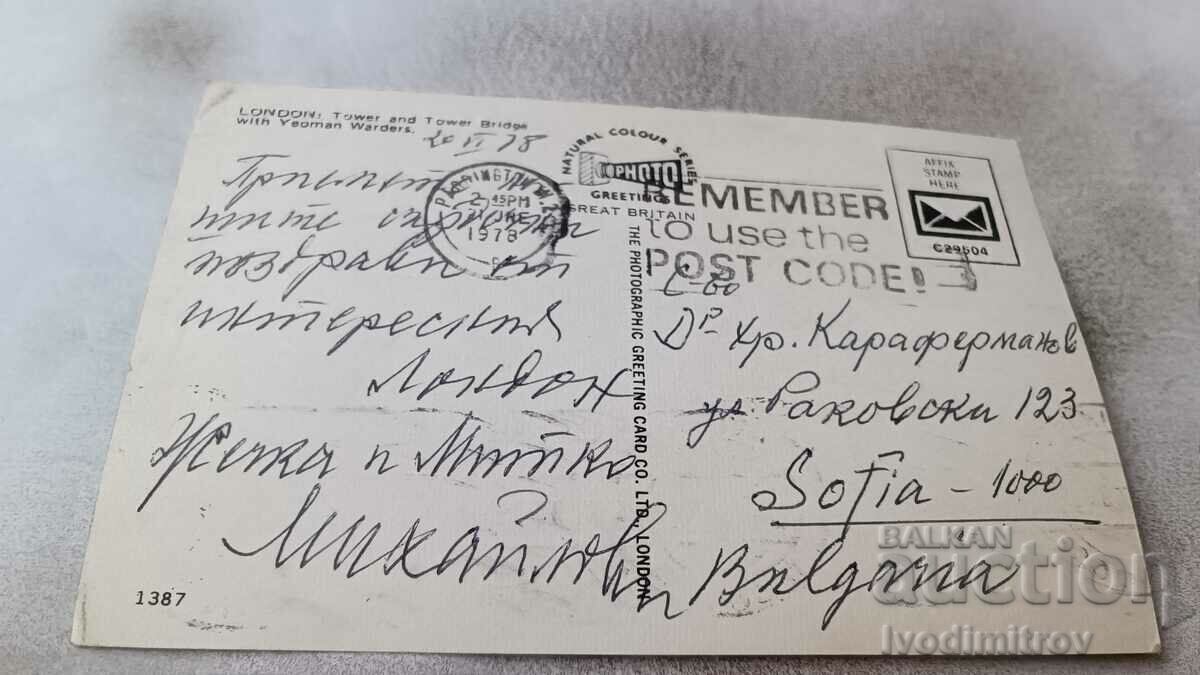 LONDON: Tower and Tower Bridge
with Yeoman Warders.
20 VI 78
Приемете
поздрави от
интересния
Лондон
Жечка и Митко
Михайлови
1387
PADDINGTON W.2
2 45PM
21 JNE
1978
NATURAL COLOUR SERIES
PHOTO
GREETINGS
GREAT BRITAIN
THE PHOTOGRAPHIC GREETING CARD CO. LTD., LONDON
REMEMBER
to use the
POST CODE!
AFFIX
STAMP
HERE
C29504
Др Хр. Караферманов
ул Раковски 123
Sofia - 1000
Bulgaria
BALKAN
auction
Ivodimitrov